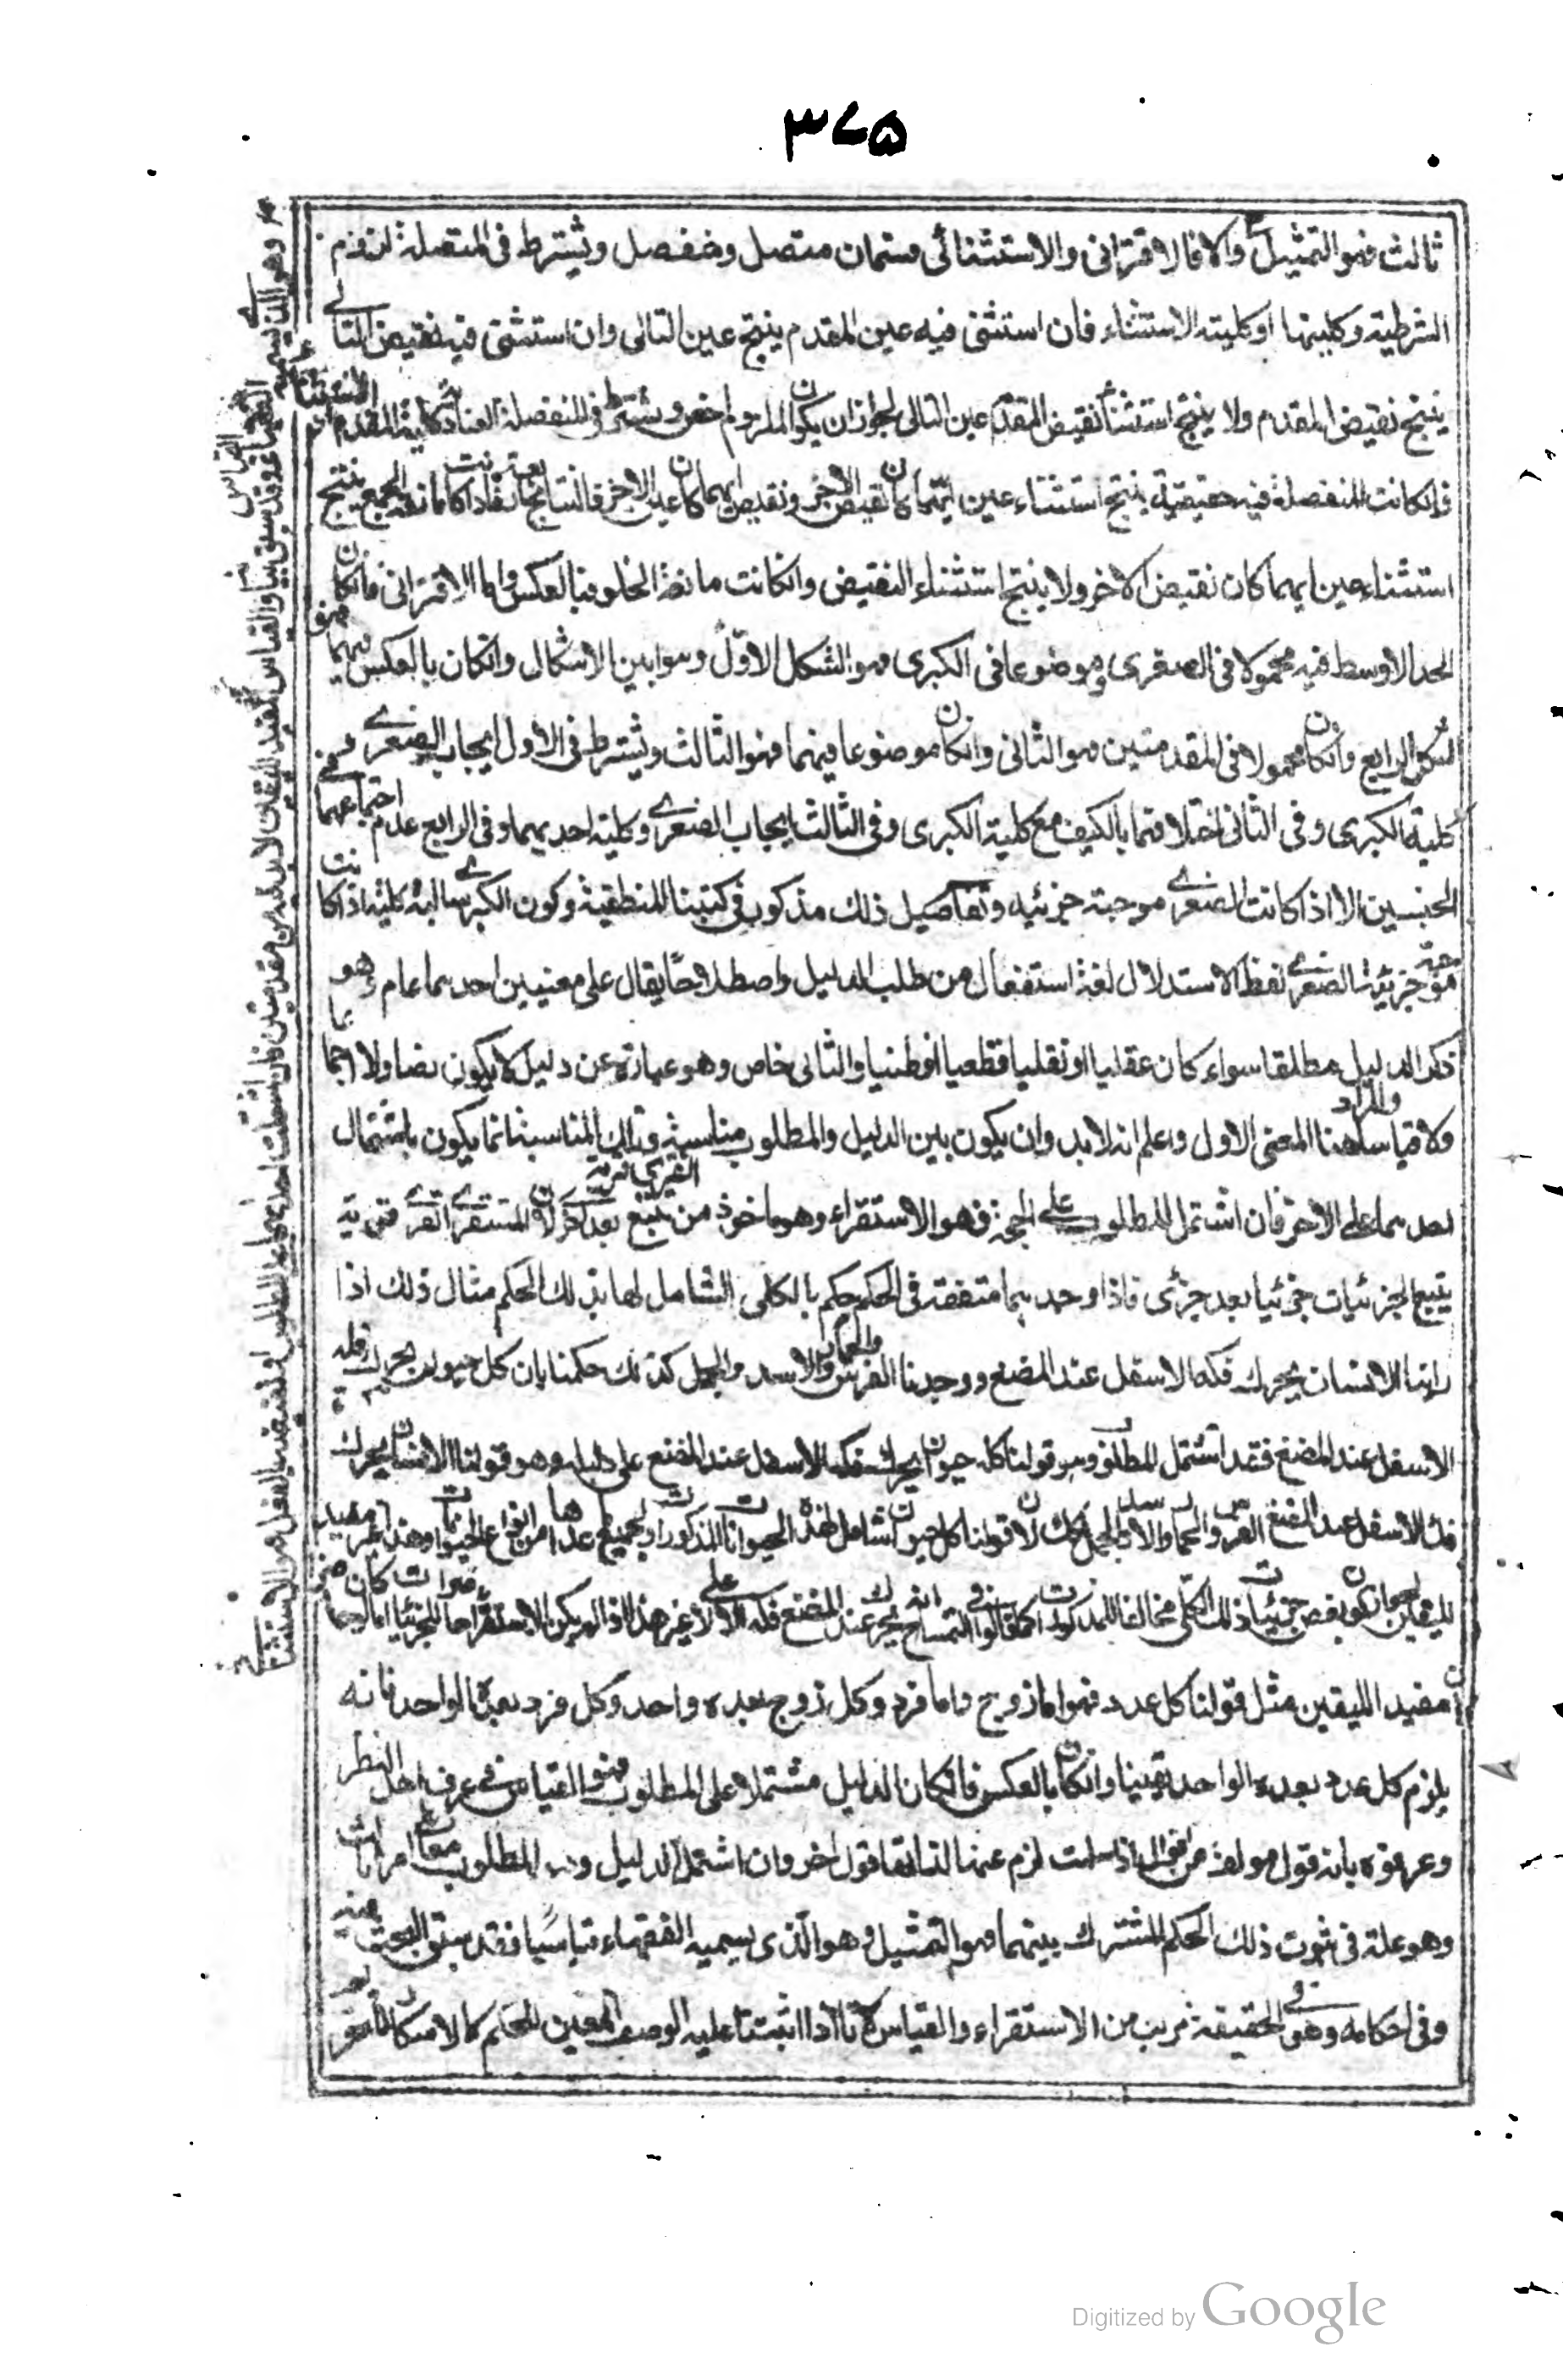 ٣٧٥
ثالث فهو التمثيل والا فالاقترانى والاستثنائى قسمان متصل ومنفصل ويشترط فى المتصلة لزوم
الشرطية وكليتها او كلية الاستثناء فان استثنى فيه عين المقدم ينتج عين التالى وان استثنى فيه نقيض التالى
ينتج نقيض المقدم ولا ينتج استثناء نقيض المقدم عين التالى لجواز ان يكون الملزوم اخص ويشترط فى المنفصلة العناد كلية المقدم او الاستثناء
فان كانت المنفصلة فيه حقيقية ينتج استثناء عين ايهما كان نقيض الاخر ونقيض ايهما كان عين الاخر فالنتايج اربعة وان كانت مانعة الجمع ينتج
استثناء عين ايهما كان نقيض الاخر ولا ينتج استثناء النقيض وانكانت مانعة الخلو فبالعكس واما الاقترانى فانكان
الحد الاوسط فيه محمولا فى الصغرى وموضوعا فى الكبرى فهو الشكل الاول وهو ابين الاشكال وانكان بالعكس فهو
الشكل الرابع وانكان محمولا فى المقدمتين فهو الثانى وانكان موضوعا فيهما فهو الثالث ويشترط فى الاول ايجاب الصغرى
كلية الكبرى وفى الثانى اختلافهما بالكيف مع كلية الكبرى وفى الثالث ايجاب الصغرى وكلية احديهما وفى الرابع عدم اجتماع
الخسيسين الا اذا كانت الصغرى موجبة جزئية وتفاصيل ذلك مذكورة فى كتبنا المنطقية وكون الكبرى سالبة كلية اذا كانت
موجبة جزئية الصغرى لفظ الاستدلال لغة استفعال من طلب الدليل واصطلاحًا يقال على معنيين احدهما عام وهو
ذكر الدليل مطلقا سواء كان عقليا او نقليا قطعيا او ظنيا والثانى خاص وهو عبارة عن دليل لا يكون نصا ولا اجماعا
ولا قياسا والمراد هنا المعنى الاول واعلم انه لا بد وان يكون بين الدليل والمطلوب مناسبة وتلك المناسبة انما يكون باشتمال
احدهما على الاخر فان اشتمل المطلوب على الحجة فهو الاستقراء وهو ماخوذ من تتبع القرى قرية بعد اخرى لان المستقرى
يتتبع الجزئيات جزئيا بعد جزئى فاذا وجدها متفقة فى الحكم حكم بالكلى الشامل لها بذلك الحكم مثال ذلك اذا
راينا الانسان يحرك فكه الاسفل عند المضغ ووجدنا الفرس والحمار والاسد والجمل كذلك حكمنا بان كل حيوان يحرك فكه
الاسفل عند المضغ فقد اشتمل المطلوب وهو قولنا كل حيوان يحرك فكه الاسفل عند المضغ على دليله وهو قولنا الانسان يحرك
فكه الاسفل عند المضغ الفرس والحمار والاسد والجمل كذلك لان قولنا كل حيوان شامل لهذه الحيوانات المذكورات ولجميع ما عداها من انواع الحيوانات وهذا غير مفيد
لليقين لجواز ان يكون بعض جزئيات ذلك الكلى مخالفا للمذكورات كما قالوا فى التمساح انه يحرك عند المضغ فكه الاعلى
مفيد اليقين مثل قولنا كل عدد فهو اما زوج واما فرد وكل زوج يعده واحد وكل فرد يعده الواحد فانه
يلزم كل عدد يعده الواحد يقينا وانكان بالعكس فان كان الدليل مشتملا على المطلوب فهو القياس فى عرف اهل النظر
وعرفوه بانه قول مولف من اقوال اذا سلمت لزم عنها لذاتها قول اخر وان اشتمل الدليل والمطلوب معا على امر ثالث
وهو علة فى ثبوت ذلك الحكم المشترك بينهما فهو التمثيل وهو الذى يسميه الفقهاء قياسيا فقد سبق البحث فيه
وفى احكامه وهو فى الحقيقة مركب من الاستقراء والقياس لانا اذا اثبتنا علية الوصف المعين للحكم كالاسكار
وهو الذى يسميه الفقهاء القياس وقد سبق بيانه والقياس المفيد لليقين لا بد فيه من مقدمتين فان اشتملت احديهما على المطلوب او نقيضه بالفعل فهو الاستثنائى
Digitized by Google